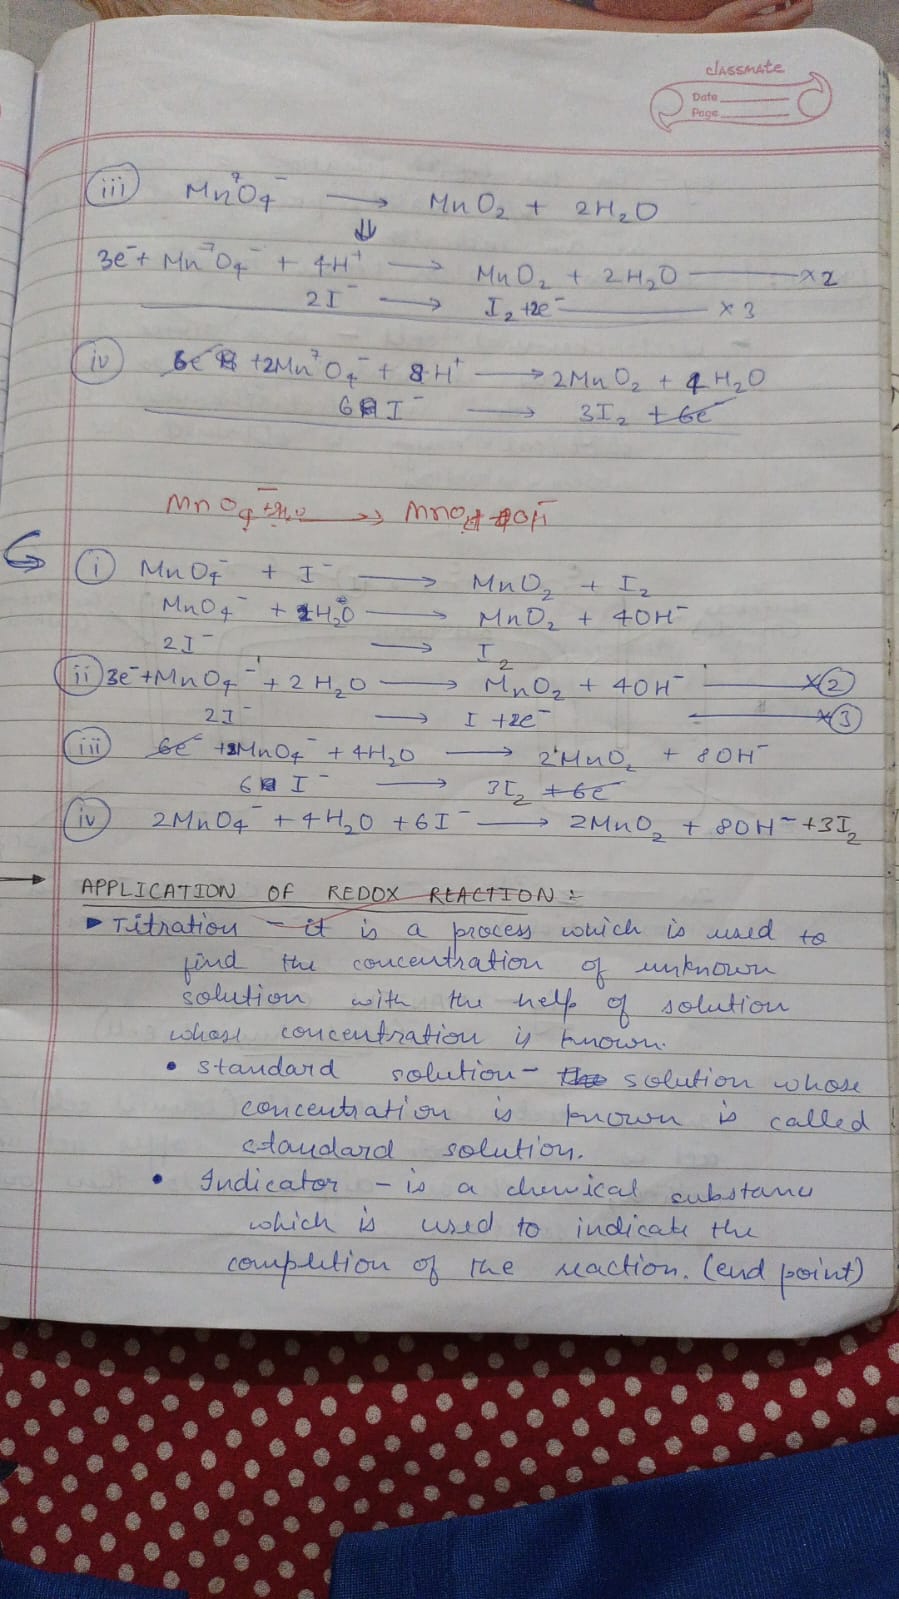 classmate
Date
Page
iii Mn⁷O₄⁻ ⟶ MnO₂ + 2H₂O
⇓
3e⁻ + Mn⁷O₄⁻ + 4H⁺ ⟶ MnO₂ + 2H₂O ——— ×2
2I⁻ ⟶ I₂ + 2e⁻ ——— × 3
iv 6e + 2Mn⁷O₄⁻ + 8H⁺ ⟶ 2MnO₂ + 4H₂O
6I⁻ ⟶ 3I₂ + 6e⁻
MnO₄⁻ + H₂O ⟶ MnO₂ + OH⁻
i MnO₄⁻ + I⁻ ⟶ MnO₂ + I₂
MnO₄⁻ + 2H₂O ⟶ MnO₂ + 4OH⁻
2I⁻ ⟶ I₂
ii 3e⁻ + MnO₄⁻ + 2H₂O ⟶ MnO₂ + 4OH⁻ ——— ×2
2I⁻ ⟶ I + 2e⁻ ——— ×3
iii 6e⁻ + 2MnO₄⁻ + 4H₂O ⟶ 2MnO₂ + 8OH⁻
6I⁻ ⟶ 3I₂ + 6e⁻
iv 2MnO₄⁻ + 4H₂O + 6I⁻ ⟶ 2MnO₂ + 8OH⁻ + 3I₂
→ APPLICATION OF REDOX REACTION :
▸ Titration – it is a process which is used to
find the concentration of unknown
solution with the help of solution
whose concentration is known.
• standard solution – the solution whose
concentration is known is called
standard solution.
• Indicator – is a chemical substance
which is used to indicate the
completion of the reaction. (end point)